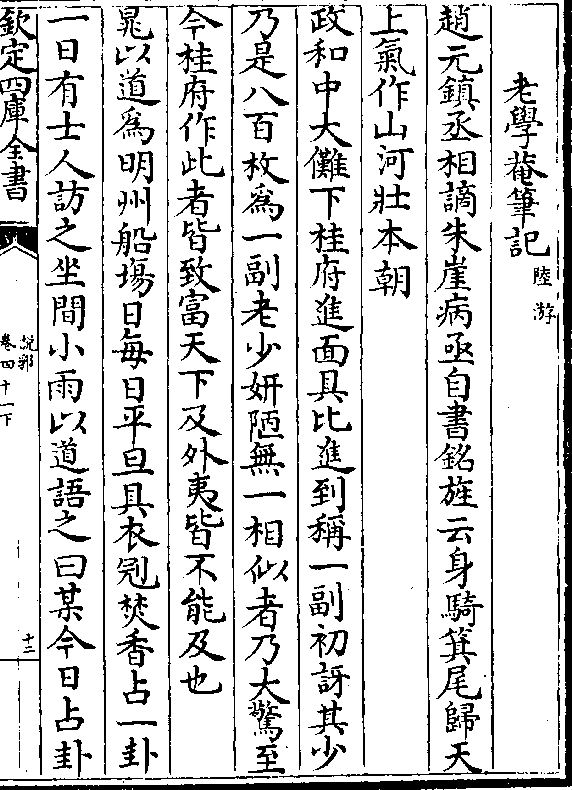 老學菴筆記 陸游
趙元鎮丞相謫朱崖病亟自書銘旌云身騎箕尾歸天
上氣作山河壯本朝
政和中大儺下桂府進面具比進到稱一副初訝其少
乃是八百枚爲一副老少妍陋無一相似者乃大驚至
今桂府作此者皆致富天下及外夷皆不能及也
晁以道爲明州船塲日每日平旦具衣冠焚香占一卦
一日有士人訪之坐間小雨以道語之曰某今日占卦
欽定四庫全書
説郛
卷四十一下
十二